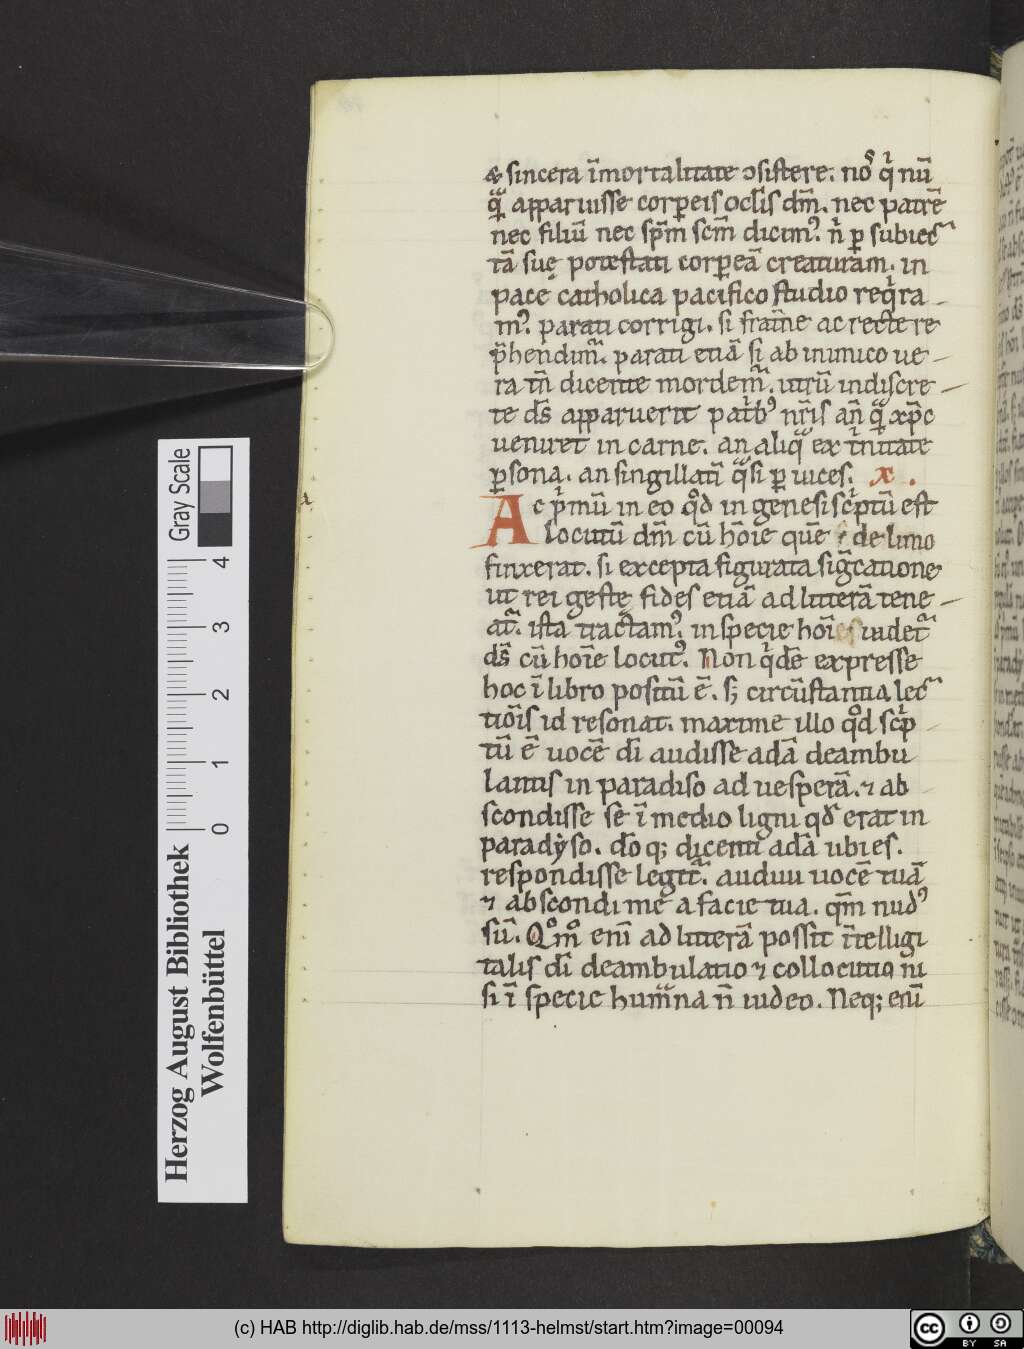 & sincera īmortalitate ɔsistere. nos̄ q̇ nū
q̃ apparuisse corꝑeis oclis̄ dm̄. nec patrē
nec filiū nec spm̄ scm̄ dicim᷒. n̄ ꝑ subiec̄
tā suę potestati corꝑeā creaturam. in
pacę catholica pacifico studio req̇ra
m᷒. parati corrigi. si frat̄ne ac recte re
p̄hendim̃. parati etiā si ab inimico ue
ra tn̄ dicente mordem̃. utrū indiscre
te ds̄ apparuerit patb᷒ nr̄is an̄ q̃ xp̄c
ueniret in carne. an aliq̃ ex ṫnitate
ꝑsona. an singillatī q̃si ꝑ uices. x .
Ac ṗmū in eo qd̊ in genesi sċptū est
locutū dm̄ cū hōīe quē de limo
finxerat. si excepta figurata sig̃catione
ut rei gestę fides etiā ad litterā tene
at̃. ista tractam᷒. in specie hoī uidet̃
ds̄ cū hoīe locut᷒. Non q̇dē expresse
hoc ī libro positū ē. s; circūstantia lec̄
tiōīs id resonat. maxime illo qd̊ sċp
tū ē uocē dī audisse adā deambu
lantis in paradiso ad uesperā. ⁊ ab
scondisse se ī medio ligni qd̓ erat in
paradẏso. dōq; dicenti adā ubi es.
respondisse legit̃. audiui uocē tuā
⁊ abscondi me a facie tua. qm̄ nud᷒
sū. Qom̊ enī ad litterā possit ītelligi
talis dī deambulatio ⁊ collocutio ni
si ī specie humãna n̄ uideo. Neq; enī
Gray Scale
4
3
2
1
0
Herzog August Bibliothek
Wolfenbüttel
(c) HAB http://diglib.hab.de/mss/1113-helmst/start.htm?image=00094
cc
BY
SA